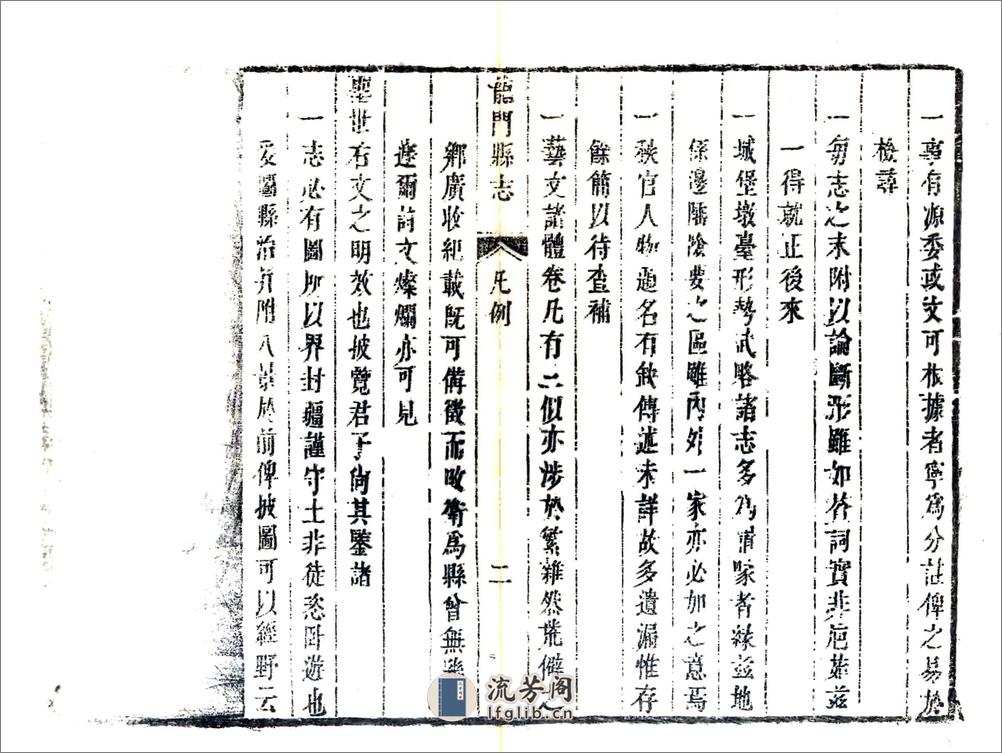 一事有源委或文可根據者寧爲分註俾之易於
檢尋
一每志之末附以論斷形雖如詞實非茲
一得就正後來
一城堡墩臺形勢武略諸志多爲者緣茲地
係邊險要之區雖內外一家亦必如之意焉
一秩官人物題名有缺傳述未詳故多遺漏惟存
餘簡以待查補
一藝文諸體卷凡有二似亦涉於繁雜然荒僻之
龍門縣志 凡例 二
鄉廣收紀載既可備徵而改衛爲縣曾無幾
爾詩文燦爛亦可見
聖世右文之明效也披覽君子尚其鑒諸
一志必有圖所以界封疆謹守土非徒恣臥遊也
爰圖縣治并附八景於前俾披圖可以經野云
流芳阁
lfglib.cn